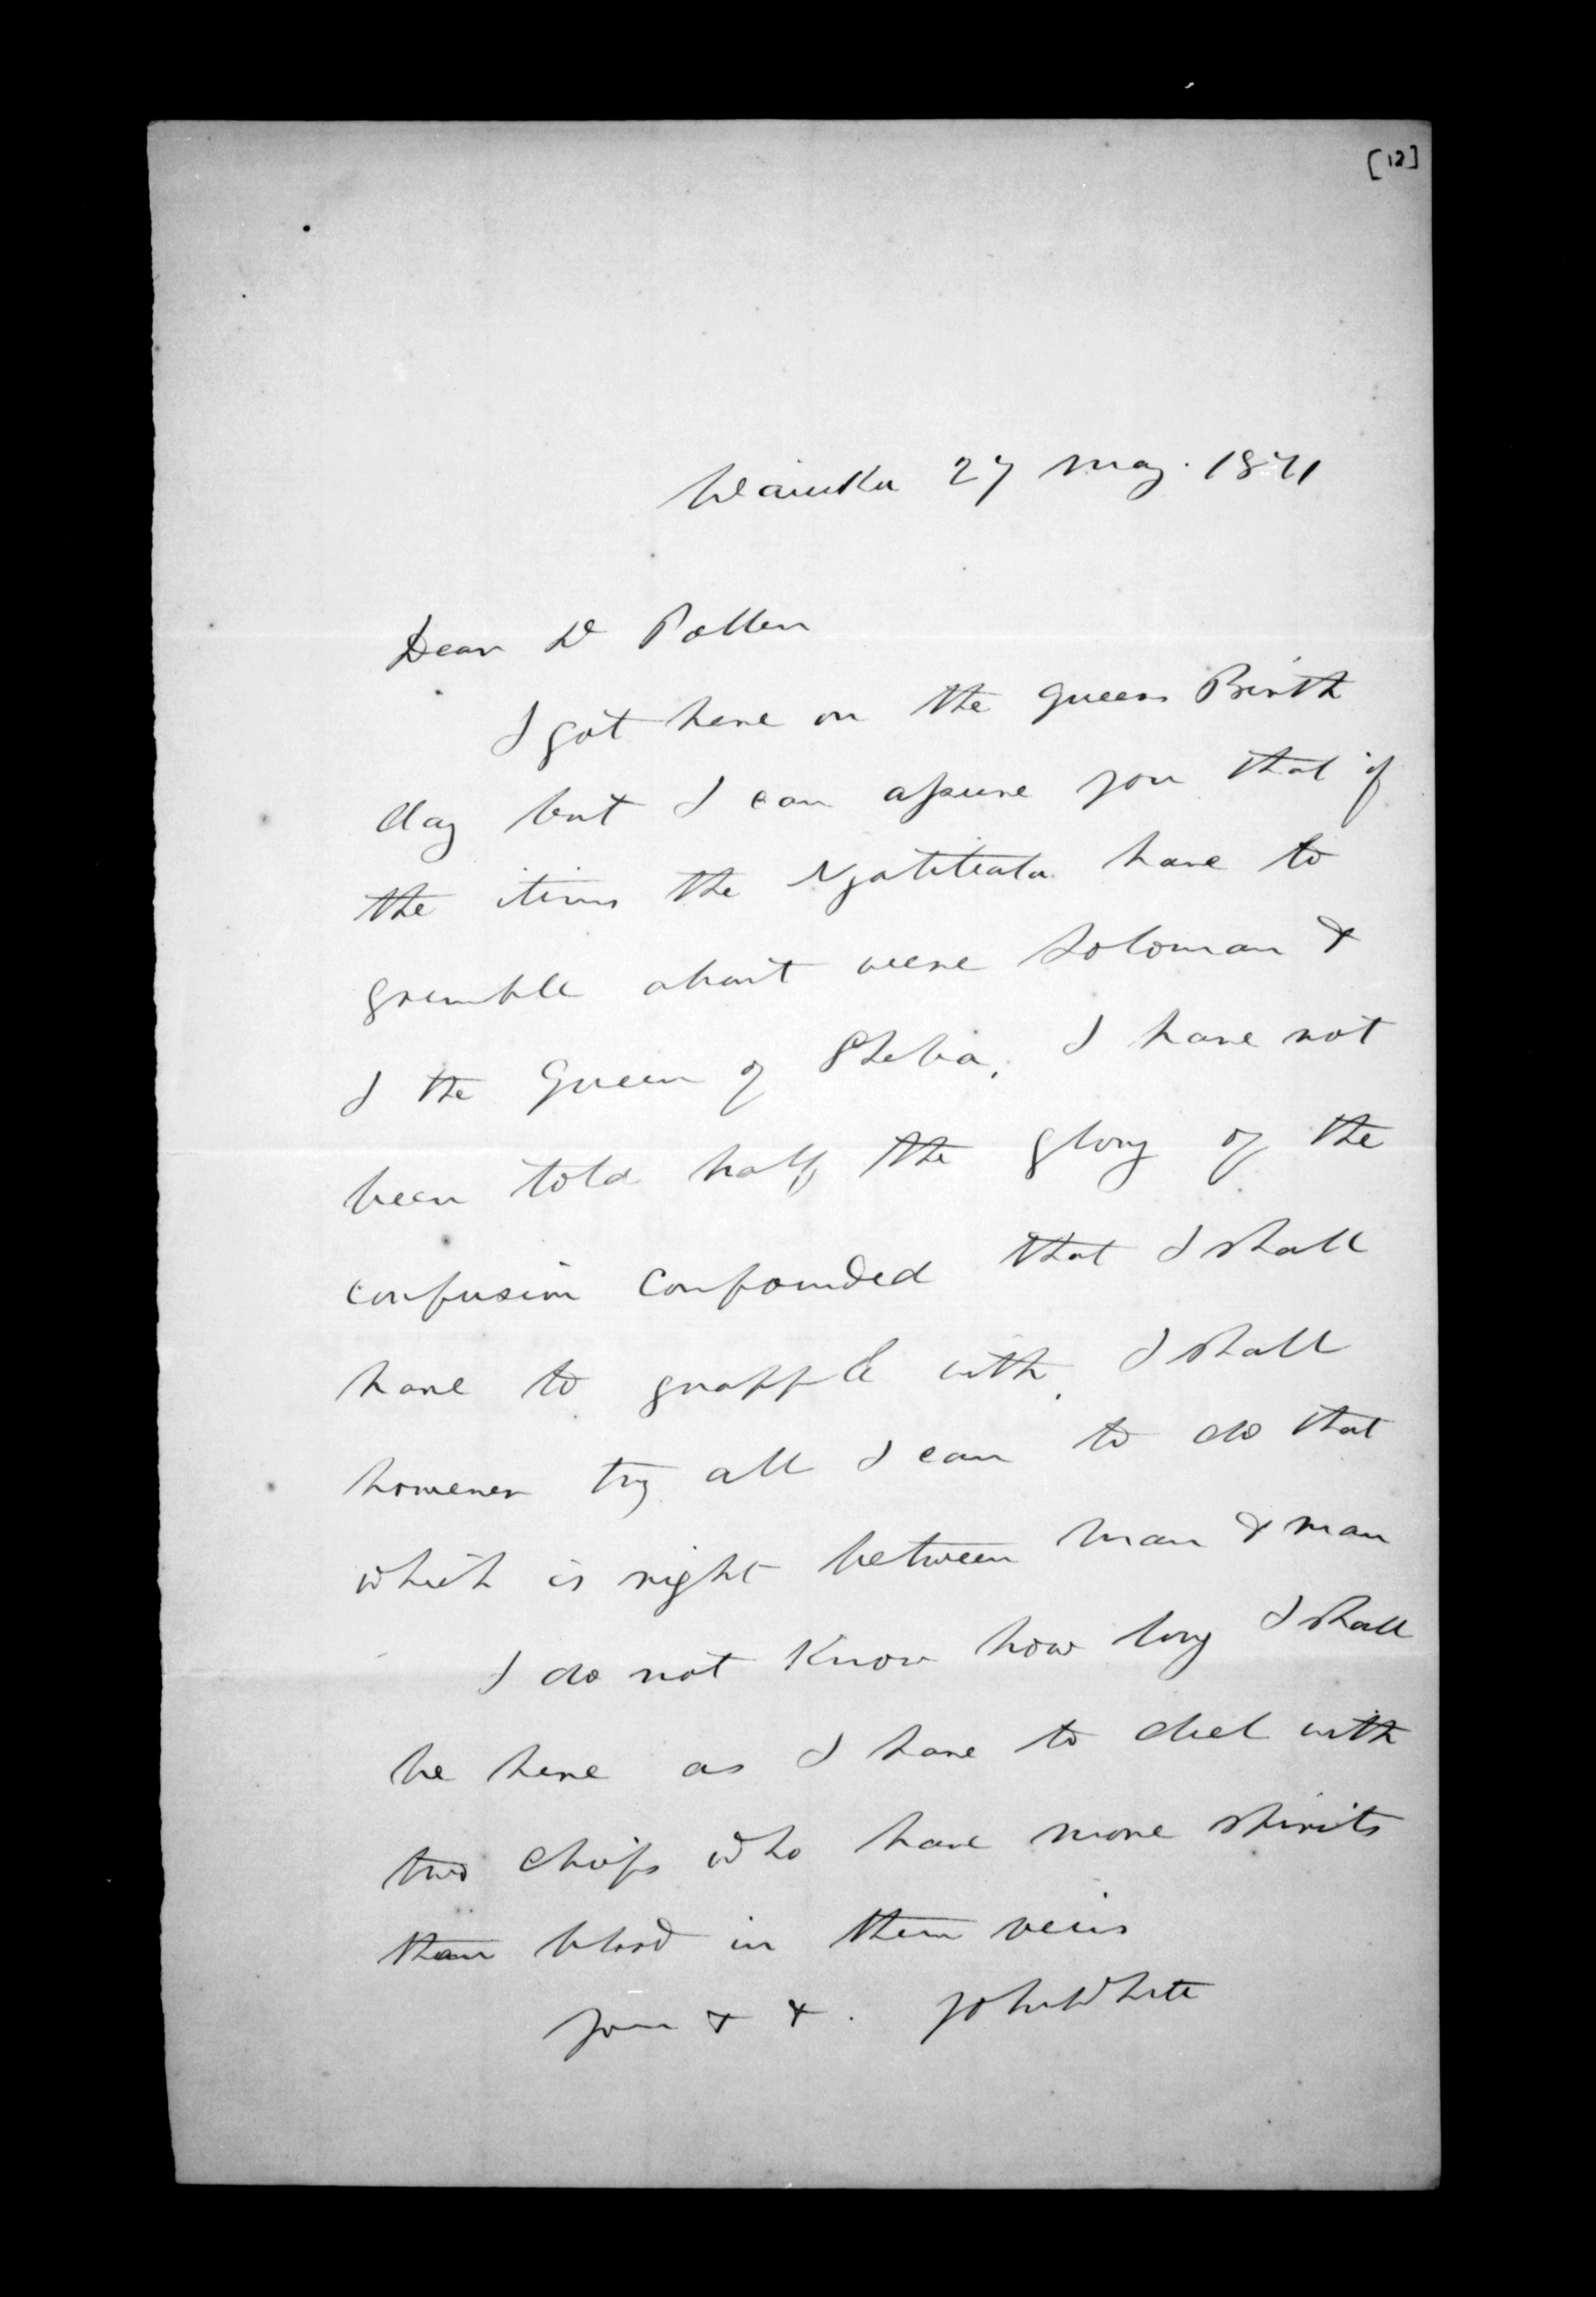 [12]
Waiuku 27 May. 1871
Dear Dr Pollen
I got here on the Queens Birth
day but I can assure you that if
the itims the Ngatiteata have to
grumble about were Soloman &
I the Queen of Sheba, I have not
been told half the glory of the
confusion confounded that I shall
have to grapple with. I shall
however try all I can to do that
which is right between man & man
I do not Know how long I shall
be here as I have to deel with
two chiefs who have more spirits
than blood in them veins
your & &. John White